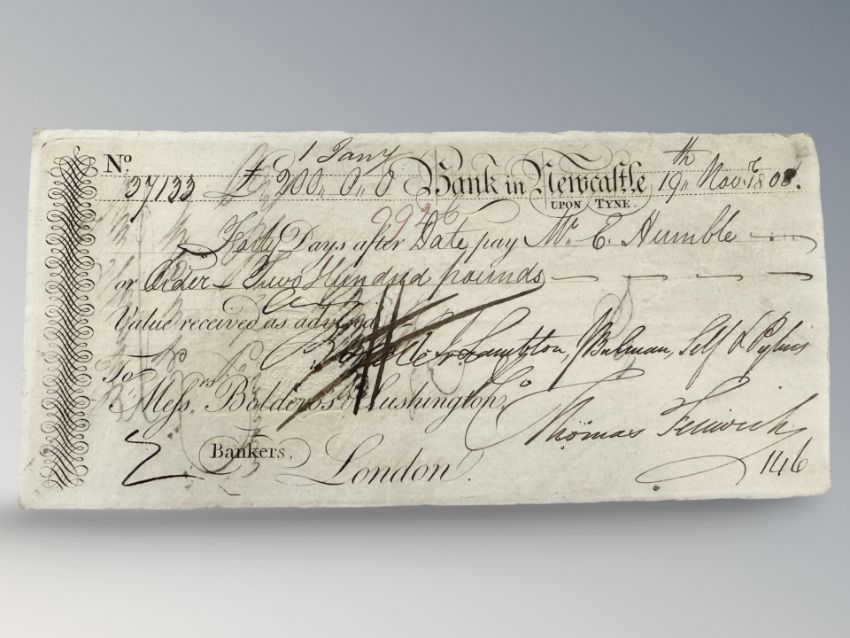 1 Jany
No 37133 £ 200,, 0,, 0 Bank in Newcastle 19th Novr. 1808.
UPON TYNE.
9926
Forty Days after Date pay Mr. E. Humble
or Order Two Hundred pounds
Value received as advised
Lambton, Bulman, Self &
To
Messrs. Boldero's & Lushington
Thomas Fenwick
Bankers, London.
146